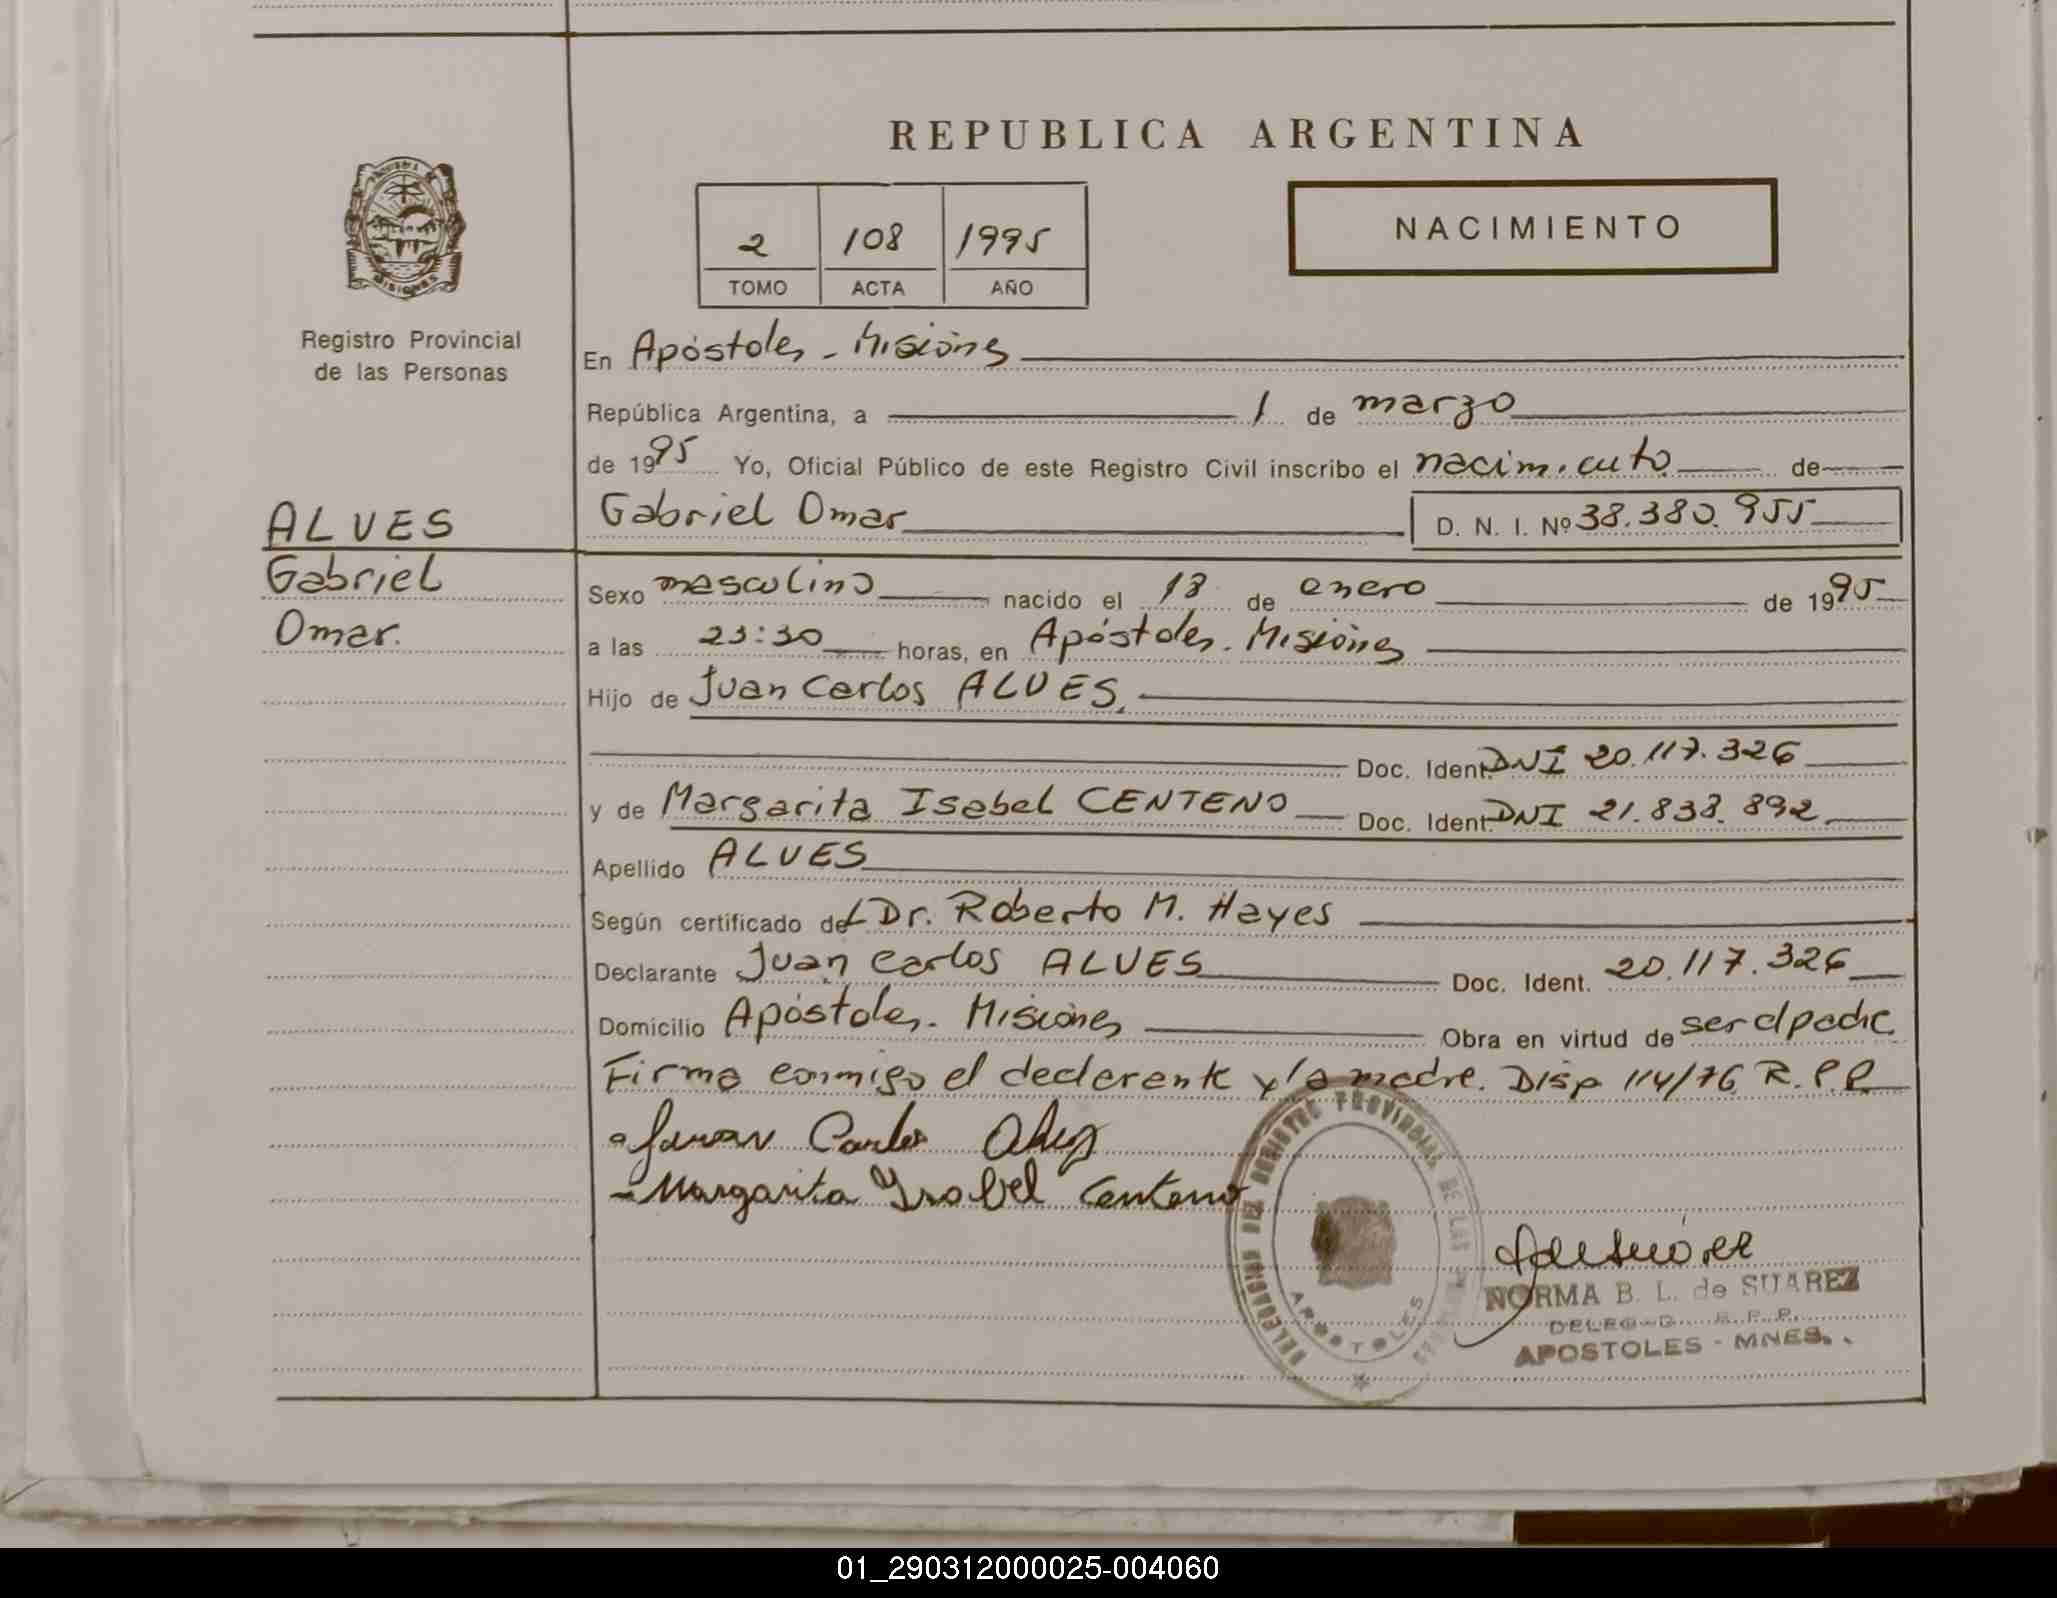 REPUBLICA ARGENTINA
2 108 1995
TOMO ACTA AÑO
NACIMIENTO
MISIONES
Registro Provincial
de las Personas
ALVES
Gabriel
Omar.
En Apóstoles - Misiones
República Argentina, a 1 de marzo
de 1995 Yo, Oficial Público de este Registro Civil inscribo el nacimiento de
Gabriel Omar D. N. I. Nº 38.380.955
Sexo masculino nacido el 18 de enero de 1995
a las 23:30 horas, en Apóstoles. Misiones
Hijo de Juan Carlos ALVES,
Doc. Ident. DNI 20.117.326
y de Margarita Isabel CENTENO Doc. Ident. DNI 21.838.892
Apellido ALVES
Según certificado del Dr. Roberto M. Hayes
Declarante Juan Carlos ALVES Doc. Ident. 20.117.326
Domicilio Apóstoles. Misiones Obra en virtud de ser el padre
Firma conmigo el declarante y la madre. Disp 114/76 R.P.P.
Juan Carlos Alves
Margarita Ysabel Centeno
DELEGACION DEL REGISTRO PROVINCIAL DE LAS
APOSTOLES
NORMA B. L. de SUAREZ
DELEGAD. R.P.P.
APOSTOLES - MNES.
01_290312000025-004060